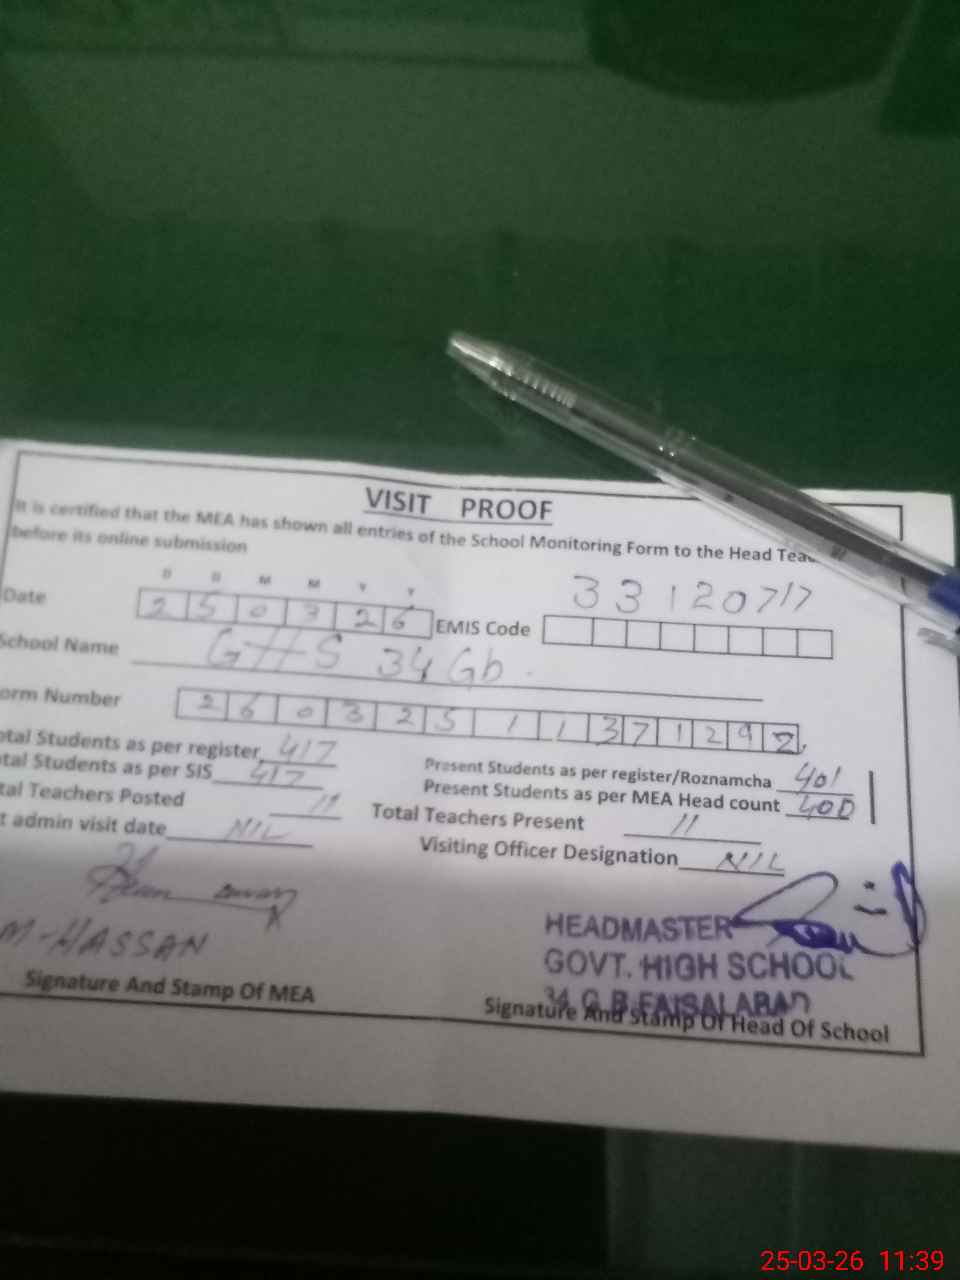 VISIT PROOF
It is certified that the MEA has shown all entries of the School Monitoring Form to the Head
before its online submission
D D M M Y Y
Date 2 5 0 3 2 6 EMIS Code 33120717
School Name GHS 34 Gb
orm Number 2 6 0 3 2 5 1 1 3 7 1 2 9 2
otal Students as per register 417 Present Students as per register/Roznamcha 401
tal Students as per SIS 417 Present Students as per MEA Head count 400
tal Teachers Posted 11 Total Teachers Present 11
t admin visit date NIL Visiting Officer Designation NIL
M-HASSAN
HEADMASTER
GOVT. HIGH SCHOOL
34 G.B FAISALABAD
Signature And Stamp Of MEA Signature And Stamp Of Head Of School
25-03-26 11:39